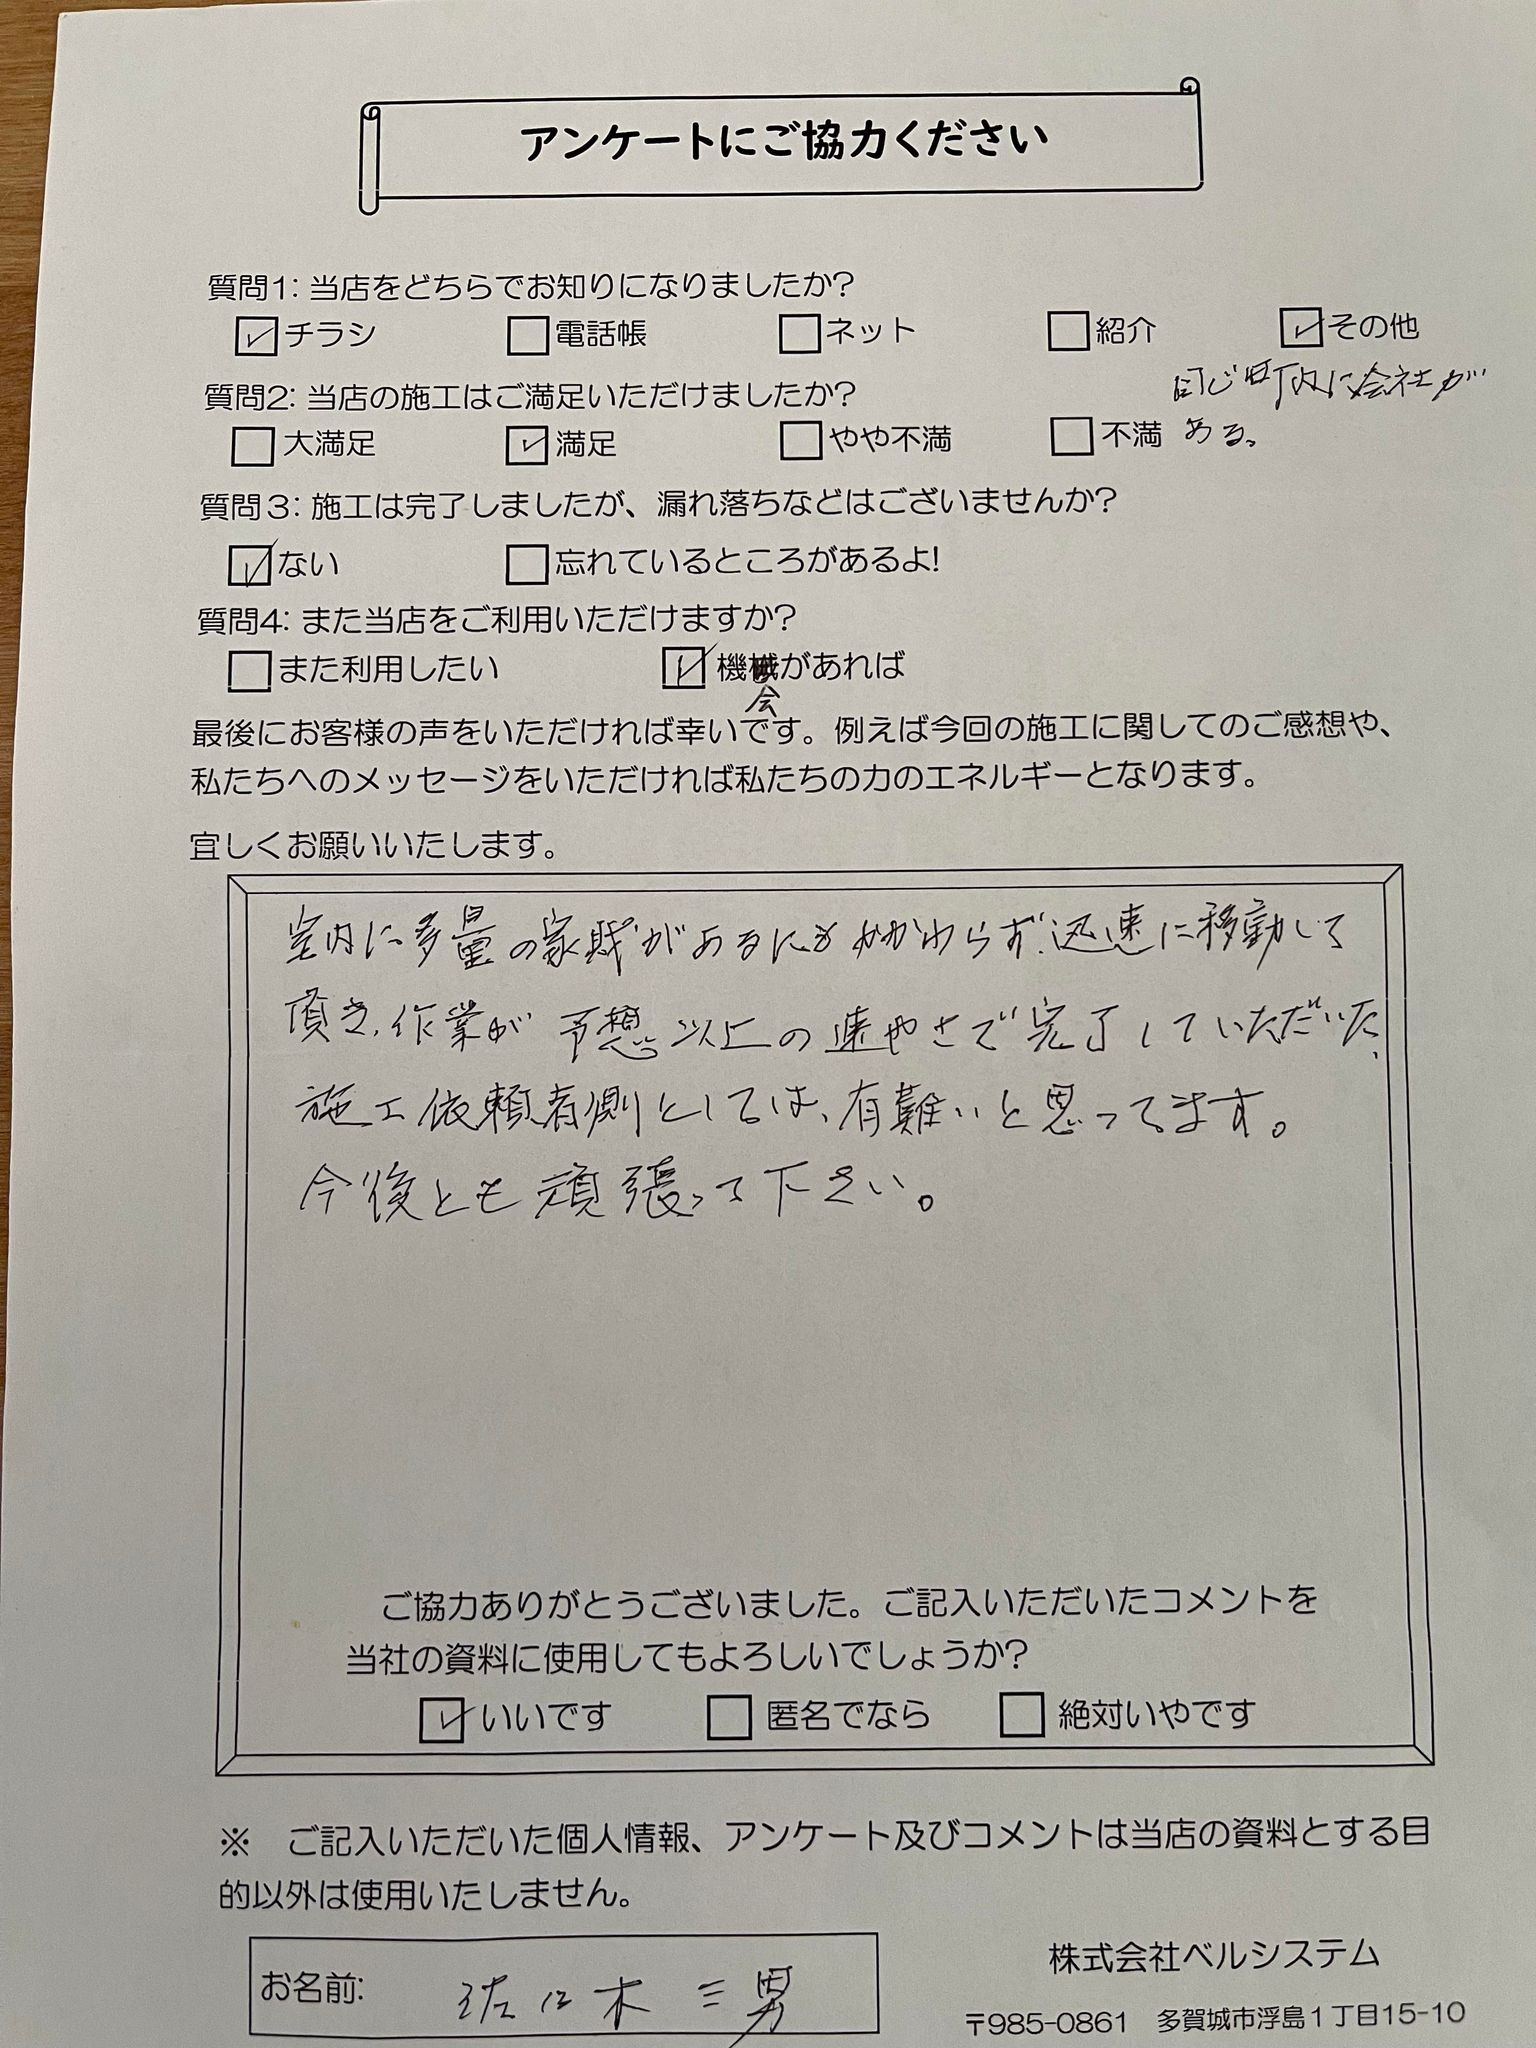 アンケートにご協力ください
質問1: 当店をどちらでお知りになりましたか?
チラシ 電話帳 ネット 紹介 その他
同じ町内に会社が
ある。
質問2: 当店の施工はご満足いただけましたか?
大満足 満足 やや不満 不満
質問3: 施工は完了しましたが、漏れ落ちなどはございませんか?
ない 忘れているところがあるよ!
質問4: また当店をご利用いただけますか?
また利用したい 機械があれば
会
最後にお客様の声をいただければ幸いです。例えば今回の施工に関してのご感想や、
私たちへのメッセージをいただければ私たちの力のエネルギーとなります。
宜しくお願いいたします。
室内に多量の家財があるにもかかわらず、迅速に移動して
頂き、作業が予想以上の速やさで完了していただいた、
施工依頼者側としては、有難いと思ってます。
今後とも頑張って下さい。
ご協力ありがとうございました。ご記入いただいたコメントを
当社の資料に使用してもよろしいでしょうか?
いいです 匿名でなら 絶対いやです
※ ご記入いただいた個人情報、アンケート及びコメントは当店の資料とする目
的以外は使用いたしません。
お名前: 佐々木 三男
株式会社ベルシステム
〒985-0861 多賀城市浮島1丁目15-10